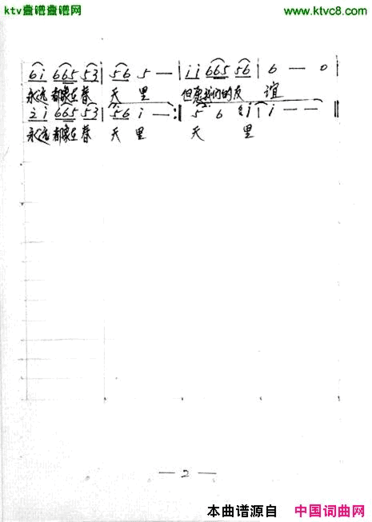 ktv查谱查谱网 www.ktvc8.com
6i 665 53 | 56 5 — | ii 665 56 | 6 — 0 |
永远都象在春 天里 但愿我们的友 谊
2i 665 53 | 56 i — :‖ 5 6 i | i — — ‖
永远都象在春 天里 天 里
— 2 —
本曲谱源自 中国词曲网